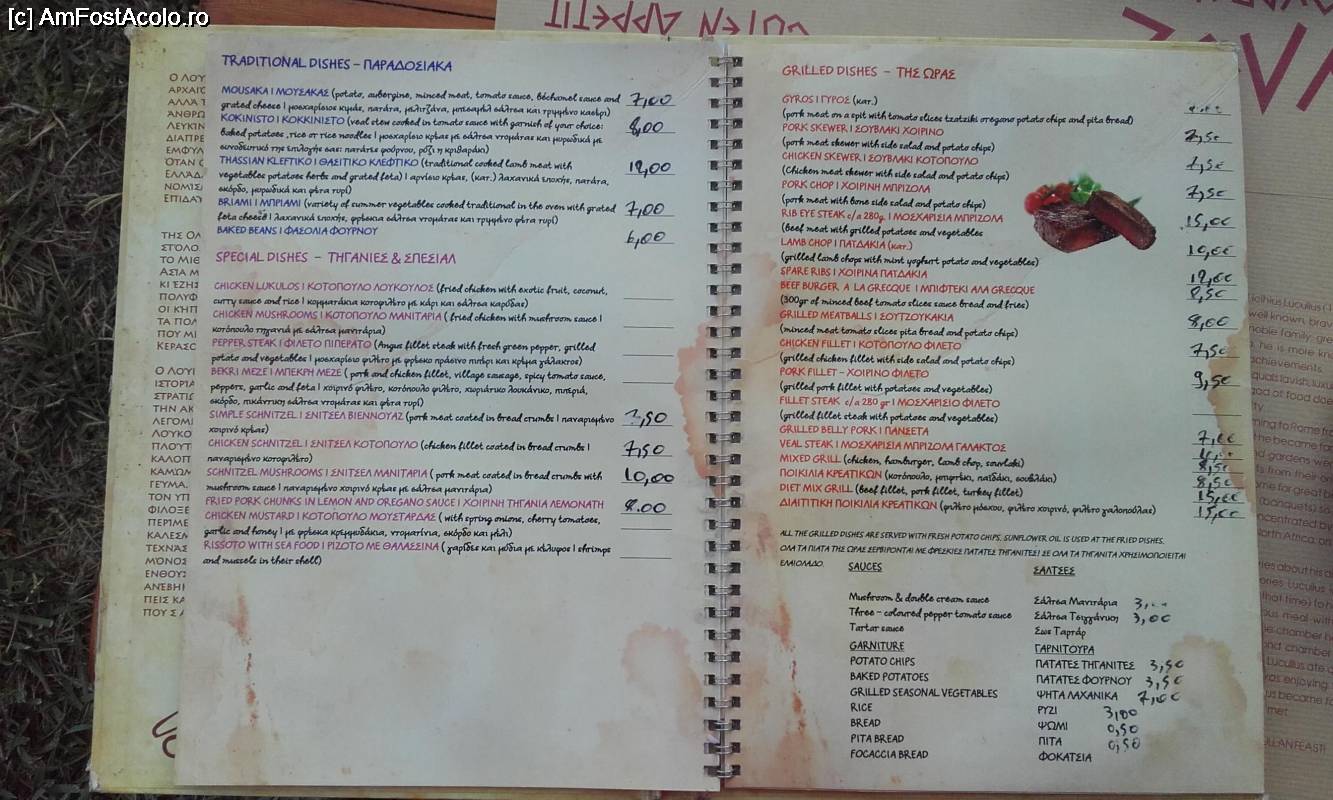 [c] AmFostAcolo.ro
GUTEN APPETIT
TRADITIONAL DISHES – ΠΑΡΑΔΟΣΙΑΚΑ
MOUSAKA | ΜΟΥΣΑΚΑΣ (potato, aubergine, minced meat, tomato sauce, béchamel sauce and 7,00
grated cheese | μοσχαρίσιος κιμάς, πατάτα, μελιτζάνα, μπεσαμέλ σάλτσα και τριμμένο κασέρι)
KOKINISTO | ΚΟΚΚΙΝΙΣΤΟ (veal stew cooked in tomato sauce with garnish of your choice: 8,00
baked potatoes, rice or rice noodles | μοσχαρίσιο κρέας με σάλτσα ντομάτας και μυρωδικά με
συνοδευτικό της επιλογής σας: πατάτες φούρνου, ρύζι η κριθαράκι)
THASSIAN KLEFTIKO | ΘΑΣΙΤΙΚΟ ΚΛΕΦΤΙΚΟ (traditional cooked lamb meat with 12,00
vegetables potatoes herbs and grated feta) | αρνίσιο κρέας, (κατ.) λαχανικά εποχής, πατάτα,
σκόρδο, μυρωδικά και φέτα τυρί)
BRIAMI | ΜΠΡΙΑΜΙ (variety of summer vegetables cooked traditional in the oven with grated 7,00
feta cheese | λαχανικά εποχής, φρέσκια σάλτσα ντομάτας και τριμμένο φέτα τυρί)
BAKED BEANS | ΦΑΣΟΛΙΑ ΦΟΥΡΝΟΥ 6,00
SPECIAL DISHES – ΤΗΓΑΝΙΕΣ & ΣΠΕΣΙΑΛ
CHICKEN LUKULOS | ΚΟΤΟΠΟΥΛΟ ΛΟΥΚΟΥΛΟΣ (fried chicken with exotic fruit, coconut,
curry sauce and rice | κομματάκια κοτοφιλέτο με κάρι και σάλτσα καρύδας)
CHICKEN MUSHROOMS | ΚΟΤΟΠΟΥΛΟ ΜΑΝΙΤΑΡΙΑ ( fried chicken with mushroom sauce |
κοτόπουλο τηγανιά με σάλτσα μανιτάρια)
PEPPER STEAK | ΦΙΛΕΤΟ ΠΙΠΕΡΑΤΟ (Angus fillet steak with fresh green pepper, grilled
potato and vegetables | μοσχαρίσιο φιλέτο με φρέσκο πράσινο πιπέρι και κρέμα γάλακτος)
BEKRI MEZE | ΜΠΕΚΡΗ ΜΕΖΕ ( pork and chicken fillet, village sausage, spicy tomato sauce,
peppers, garlic and feta | χοιρινό φιλέτο, κοτόπουλο φιλέτο, χωριάτικο λουκάνικο, πιπεριά,
σκόρδο, πικάντικη σάλτσα ντομάτας και φέτα τυρί)
SIMPLE SCHNITZEL | ΣΝΙΤΣΕΛ ΒΙΕΝΝΟΥΑΖ (pork meat coated in bread crumbs | παναρισμένο 7,50
χοιρινό κρέας)
CHICKEN SCHNITZEL | ΣΝΙΤΣΕΛ ΚΟΤΟΠΟΥΛΟ (chicken fillet coated in bread crumbs | 7,50
παναρισμένο κοτοφιλέτο)
SCHNITZEL MUSHROOMS | ΣΝΙΤΣΕΛ ΜΑΝΙΤΑΡΙΑ ( pork meat coated in bread crumbs with 10,00
mushroom sauce | παναρισμένο χοιρινό κρέας με σάλτσα μανιτάρια)
FRIED PORK CHUNKS IN LEMON AND OREGANO SAUCE | ΧΟΙΡΙΝΗ ΤΗΓΑΝΙΑ ΛΕΜΟΝΑΤΗ 8.00
CHICKEN MUSTARD | ΚΟΤΟΠΟΥΛΟ ΜΟΥΣΤΑΡΔΑΣ ( with spring onions, cherry tomatoes,
garlic and honey | με φρέσκα κρεμμυδάκια, ντοματίνια, σκόρδο και μέλι)
RISSOTO WITH SEA FOOD | ΡΙΖΟΤΟ ΜΕ ΘΑΛΑΣΣΙΝΑ ( γαρίδες και μύδια με κέλυφος | shrimps
and mussels in their shell)
GRILLED DISHES – ΤΗΣ ΩΡΑΣ
GYROS | ΓΥΡΟΣ (κατ.)
(pork meat on a spit with tomato slices tzatziki oregano potato chips and pita bread)
PORK SKEWER | ΣΟΥΒΛΑΚΙ ΧΟΙΡΙΝΟ 7,50
(pork meat skewer with side salad and potato chips)
CHICKEN SKEWER | ΣΟΥΒΛΑΚΙ ΚΟΤΟΠΟΥΛΟ 7,50
(Chicken meat skewer with side salad and potato chips)
PORK CHOP | ΧΟΙΡΙΝΗ ΜΠΡΙΖΟΛΑ 7,50
(pork meat with bone side salad and potato chips)
RIB EYE STEAK c/a 280g. | ΜΟΣΧΑΡΙΣΙΑ ΜΠΡΙΖΟΛΑ 15,00
(beef meat with grilled potatoes and vegetables
LAMB CHOP | ΠΑΤΔΑΚΙΑ (κατ.) 10,00
(grilled lamb chops with mint yoghurt potato and vegetables)
SPARE RIBS | ΧΟΙΡΙΝΑ ΠΑΤΔΑΚΙΑ 12,00
BEEF BURGER A LA GRECQUE | ΜΠΙΦΤΕΚΙ ΑΛΑ GRECQUE 8,50
(300gr of minced beef tomato slices sauce bread and fries)
GRILLED MEATBALLS | ΣΟΥΤΖΟΥΚΑΚΙΑ 8,00
(minced meat tomato slices pita bread and potato chips)
CHICKEN FILLET | ΚΟΤΟΠΟΥΛΟ ΦΙΛΕΤΟ 7,50
(grilled chicken fillet with side salad and potato chips)
PORK FILLET - ΧΟΙΡΙΝΟ ΦΙΛΕΤΟ 9,50
(grilled pork fillet with potatoes and vegetables)
FILLET STEAK c/a 280 gr | ΜΟΣΧΑΡΙΣΙΟ ΦΙΛΕΤΟ
(grilled fillet steak with potatoes and vegetables)
GRILLED BELLY PORK | ΠΑΝΣΕΤΑ 7,00
VEAL STEAK | ΜΟΣΧΑΡΙΣΙΑ ΜΠΡΙΖΟΛΑ ΓΑΛΑΚΤΟΣ
MIXED GRILL (chicken, hamburger, lamb chop, souvlaki) 8,50
ΠΟΙΚΙΛΙΑ ΚΡΕΑΤΙΚΩΝ (κοτόπουλο, μπιφτέκι, παϊδάκι, σουβλάκι) 8,50
DIET MIX GRILL (beef fillet, pork fillet, turkey fillet) 15,00
ΔΙΑΙΤΙΤΙΚΗ ΠΟΙΚΙΛΙΑ ΚΡΕΑΤΙΚΩΝ (φιλέτο μόσχου, φιλέτο χοιρινό, φιλέτο γαλοπούλας) 15,00
ALL THE GRILLED DISHES ARE SERVED WITH FRESH POTATO CHIPS. SUNFLOWER OIL IS USED AT THE FRIED DISHES.
ΟΛΑ ΤΑ ΠΙΑΤΑ ΤΗΣ ΩΡΑΣ ΣΕΡΒΙΡΟΝΤΑΙ ΜΕ ΦΡΕΣΚΙΕΣ ΠΑΤΑΤΕΣ ΤΗΓΑΝΙΤΕΣ! ΣΕ ΟΛΑ ΤΑ ΤΗΓΑΝΙΤΑ ΧΡΗΣΙΜΟΠΟΙΕΙΤΑΙ
ΕΛΑΙΟΛΑΔΟ.
SAUCES ΣΑΛΤΣΕΣ
Mushroom & double cream sauce Σάλτσα Μανιτάρια
Three - coloured pepper tomato sauce Σάλτσα Τσιγγάνικη 3,00
Tartar sauce Σως Ταρτάρ
GARNITURE ΓΑΡΝΙΤΟΥΡΑ
POTATO CHIPS ΠΑΤΑΤΕΣ ΤΗΓΑΝΙΤΕΣ 3,50
BAKED POTATOES ΠΑΤΑΤΕΣ ΦΟΥΡΝΟΥ 3,50
GRILLED SEASONAL VEGETABLES ΨΗΤΑ ΛΑΧΑΝΙΚΑ 7,00
RICE ΡΥΖΙ 3,00
BREAD ΨΩΜΙ 0,50
PITA BREAD ΠΙΤΑ 0,50
FOCACCIA BREAD ΦΟΚΑΤΣΙΑ